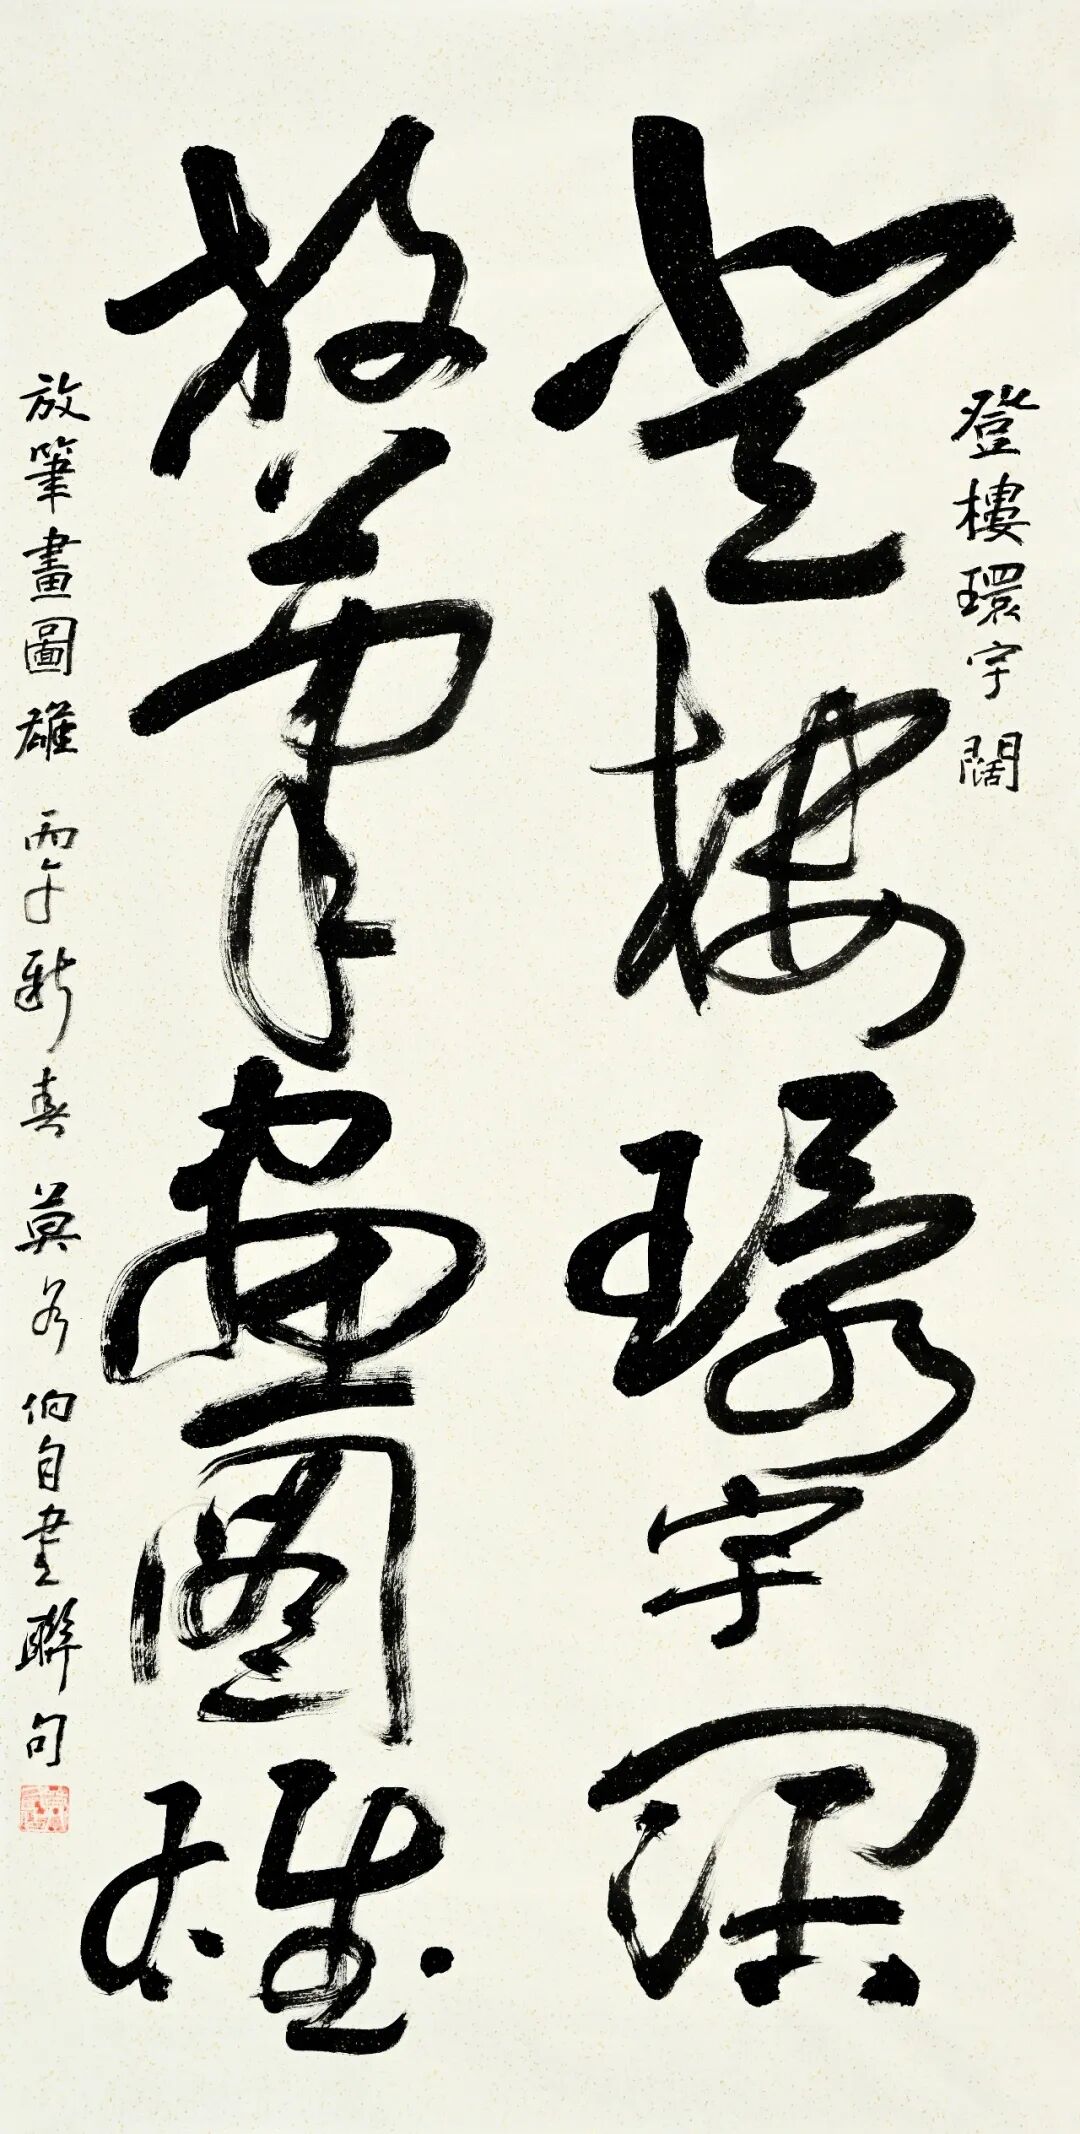 登樓環宇闊
登樓環宇闊
放筆畫圖雄
放筆畫圖雄 丙午新春 莫各伯自書聯句